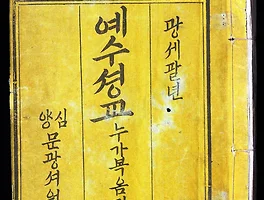 광세팔년
예수셩교누가복음
심양문광셔원